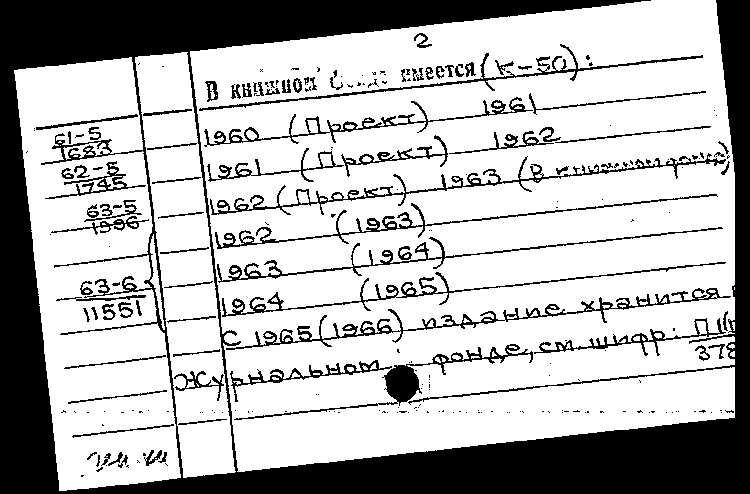 2
В книжном фонде имеется (К-50):
61-5
1683 1960 (Проект) 1961
62-5
1745 1961 (Проект) 1962
63-5
1996 1962 (Проект) 1963 (В книжном фонде)
1962 (1963)
1963 (1964)
63-6
11551 1964 (1965)
С 1965 (1966) издание хранится
Журнальном фонде, см. шифр:
378